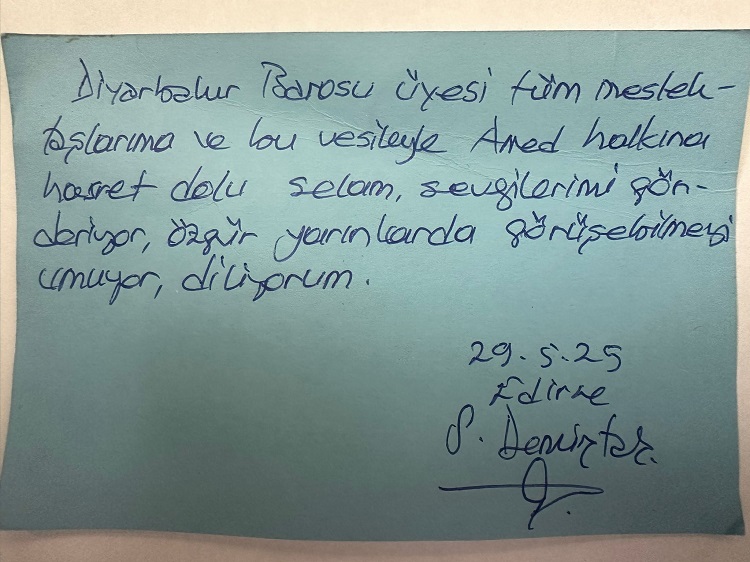 Diyarbakır Barosu üyesi tüm meslek-
taşlarıma ve bu vesileyle Amed halkına
hasret dolu selam, sevgilerimi gön-
deriyor, özgür yarınlarda görüşebilmeyi
umuyor, diliyorum.
29.5.25
Edirne
S. Demirtaş.